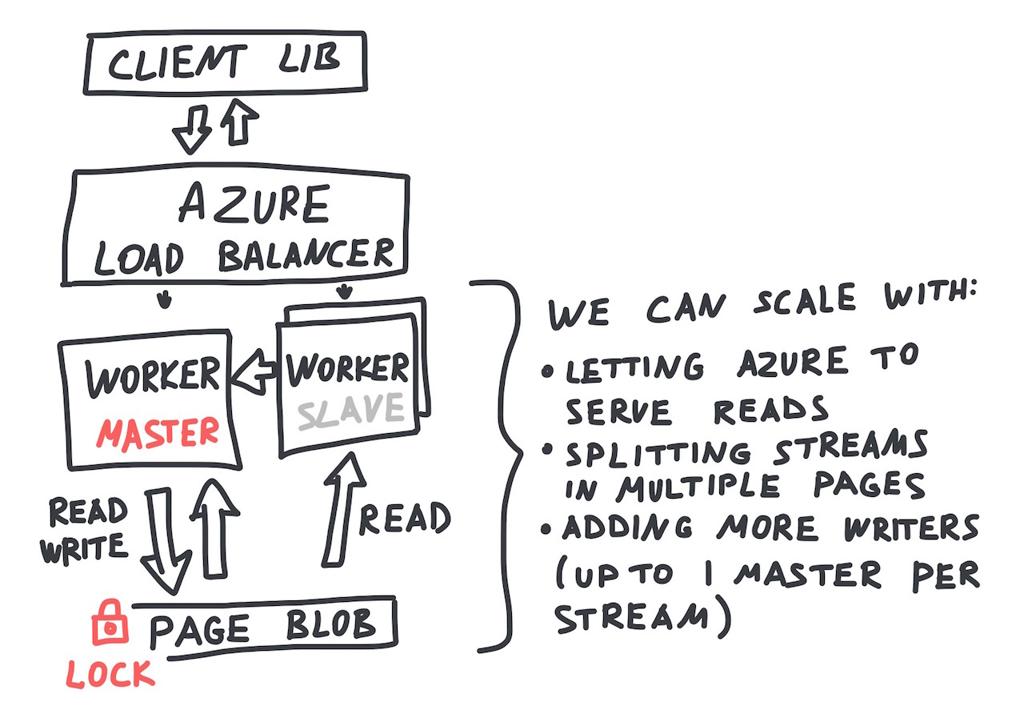 CLIENT LIB
AZURE
LOAD BALANCER
WORKER
MASTER
WORKER
SLAVE
READ
WRITE
READ
LOCK
PAGE BLOB
WE CAN SCALE WITH:
• LETTING AZURE TO
SERVE READS
• SPLITTING STREAMS
IN MULTIPLE PAGES
• ADDING MORE WRITERS
(UP TO 1 MASTER PER
STREAM)